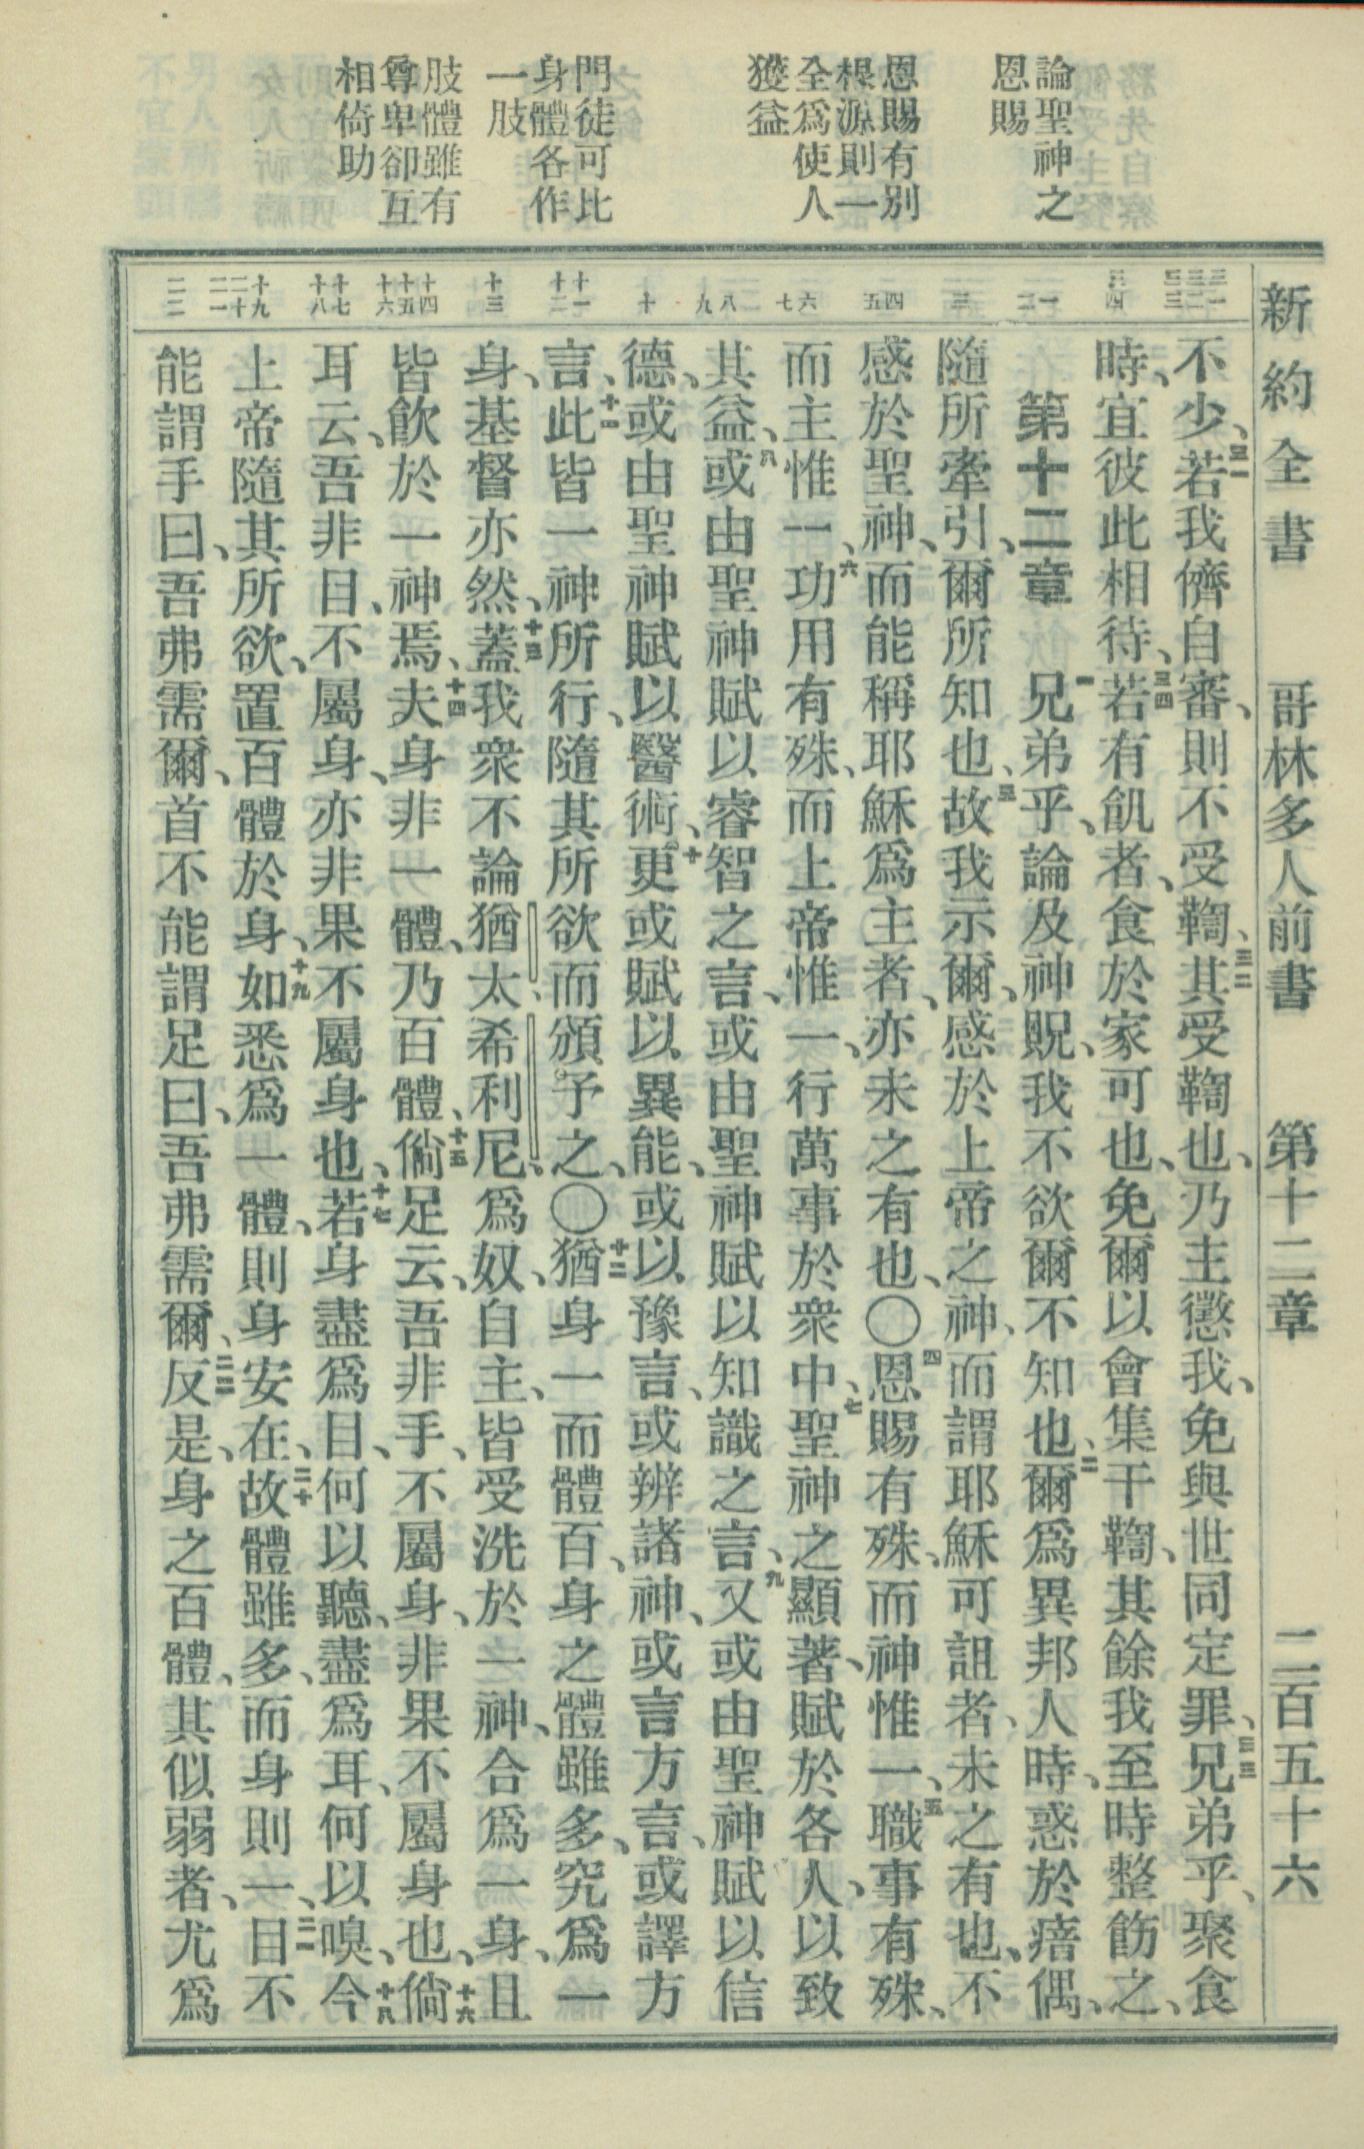 新約全書　哥林多人前書　第十二章　二百五十六
論聖神之
恩賜
恩賜有別
根源則一
全爲使人
獲益
門徒可比
身體各作
一肢
肢體雖有
尊卑卻互
相倚助
三一 三二 三三
三四
一 二
三
四 五
六 七
八 九
十
十一 十二
十三
十四 十五 十六
十七 十八
十九 二十 二一
二二
不少、三一若我儕自審、則不受鞫、三二其受鞫也、乃主懲我、免與世同定罪、三三兄弟乎、聚食
時、宜彼此相待、三四若有飢者、食於家可也、免爾以會集干鞫、其餘我至時整飭之、
第十二章　一兄弟乎、論及神貺、我不欲爾不知也、二爾爲異邦人時、惑於瘖偶、
隨所牽引、爾所知也、三故我示爾、感於上帝之神、而謂耶穌可詛者、未之有也、不
感於聖神、而能稱耶穌爲主者、亦未之有也、〇四恩賜有殊、而神惟一、五職事有殊、
而主惟一、六功用有殊、而上帝惟一、行萬事於衆中、七聖神之顯著、賦於各人、以致
其益、八或由聖神賦以睿智之言、或由聖神賦以知識之言、九又或由聖神賦以信
德、或由聖神賦以醫術、十更或賦以異能、或以豫言、或辨諸神、或言方言、或譯方
言、十一此皆一神所行、隨其所欲而頒予之、〇十二猶身一而體百、身之體雖多、究爲一
身、基督亦然、十三蓋我衆不論猶太、希利尼、爲奴、自主、皆受洗於一神、合爲一身、且
皆飲於一神焉、十四夫身非一體、乃百體、十五倘足云、吾非手、不屬身、非果不屬身也、十六倘
耳云、吾非目、不屬身、亦非果不屬身也、十七若身盡爲目、何以聽、盡爲耳、何以嗅、十八今
上帝隨其所欲、置百體於身、十九如悉爲一體、則身安在、二十故體雖多、而身則一、二一目不
能謂手曰、吾弗需爾、首不能謂足曰、吾弗需爾、二二反是、身之百體、其似弱者、尤爲